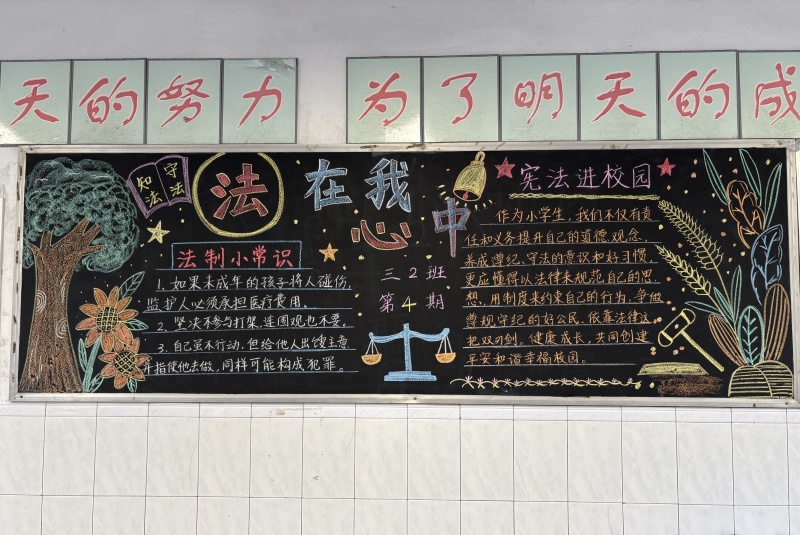 天的努力 为了明天的成
知法 守法
法在我心中
法制小常识
1. 如果未成年的孩子将人碰伤,
监护人必须承担医疗费用.
2. 坚决不参与打架,连围观也不要.
3. 自己虽不行动,但给他人出馊主意
并指使他去做,同样可能构成犯罪。
三 2 班
第 4 期
宪法进校园
作为小学生,我们不仅有责
任和义务提升自己的道德观念,
养成遵纪、守法的意识和好习惯,
更应懂得以法律来规范自己的思
想,用制度来约束自己的行为,争做
遵规守纪的好公民.依靠法律这
把双刃剑,健康成长,共同创建
平安和谐幸福校园。